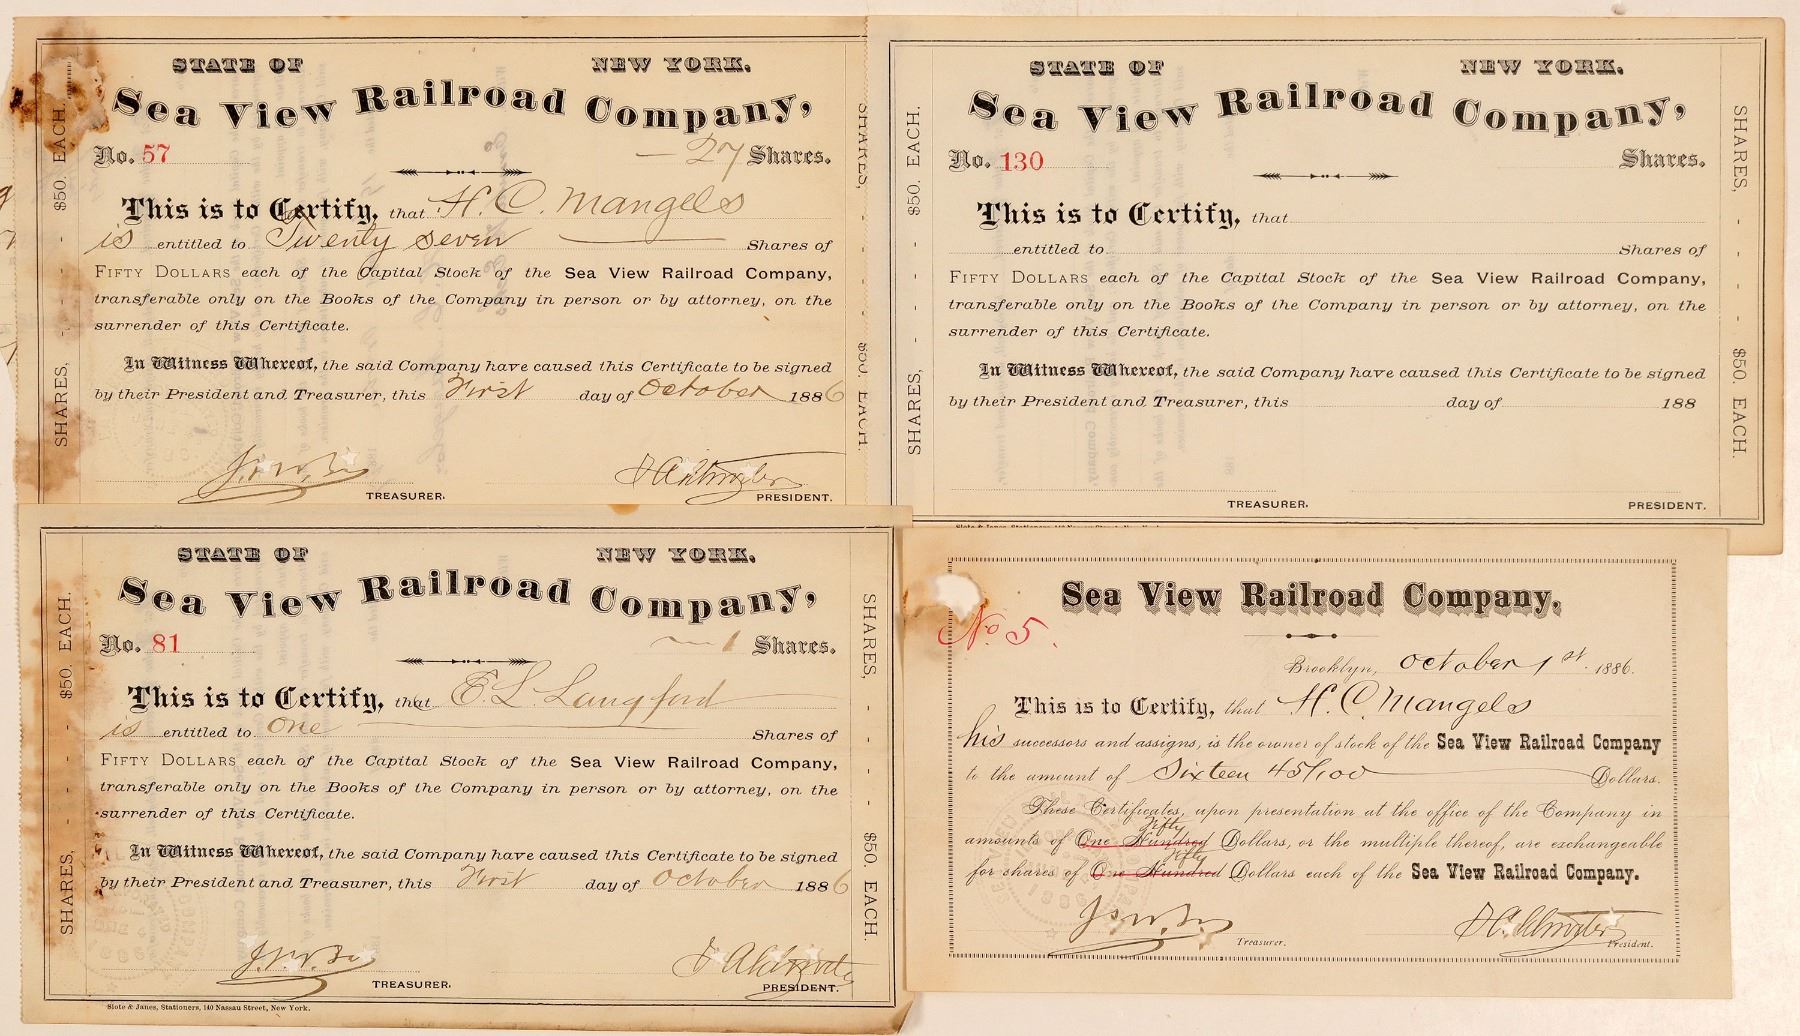 STATE OF NEW YORK.
Sea View Railroad Company,
No. 57 27 Shares.
This is to Certify, that H. C. Mangels
is entitled to Twenty seven Shares of
FIFTY DOLLARS each of the Capital Stock of the Sea View Railroad Company,
transferable only on the Books of the Company in person or by attorney, on the
surrender of this Certificate.
In Witness Whereof, the said Company have caused this Certificate to be signed
by their President and Treasurer, this First day of October 1886
TREASURER. PRESIDENT.
SHARES, $50. EACH.
SHARES, $50. EACH.
STATE OF NEW YORK.
Sea View Railroad Company,
No. 130 Shares.
This is to Certify, that
entitled to Shares of
FIFTY DOLLARS each of the Capital Stock of the Sea View Railroad Company,
transferable only on the Books of the Company in person or by attorney, on the
surrender of this Certificate.
In Witness Whereof, the said Company have caused this Certificate to be signed
by their President and Treasurer, this day of 188
TREASURER. PRESIDENT.
SHARES, $50. EACH.
SHARES, $50. EACH.
STATE OF NEW YORK.
Sea View Railroad Company,
No. 81 1 Shares.
This is to Certify, that E. L. Langford
is entitled to One Shares of
FIFTY DOLLARS each of the Capital Stock of the Sea View Railroad Company,
transferable only on the Books of the Company in person or by attorney, on the
surrender of this Certificate.
In Witness Whereof, the said Company have caused this Certificate to be signed
by their President and Treasurer, this First day of October 1886
TREASURER. PRESIDENT.
SHARES, $50. EACH.
SHARES, $50. EACH.
Slote & Janes, Stationers, 140 Nassau Street, New York.
Sea View Railroad Company.
No 5.
Brooklyn, October 1st. 1886.
This is to Certify, that H. C. Mangels
his successors and assigns, is the owner of stock of the Sea View Railroad Company
to the amount of Sixteen 45/100 Dollars.
These Certificates, upon presentation at the office of the Company in
fifty
amounts of One Hundred Dollars, or the multiple thereof, are exchangeable
fifty
for shares of One Hundred Dollars each of the Sea View Railroad Company.
Treasurer. President.